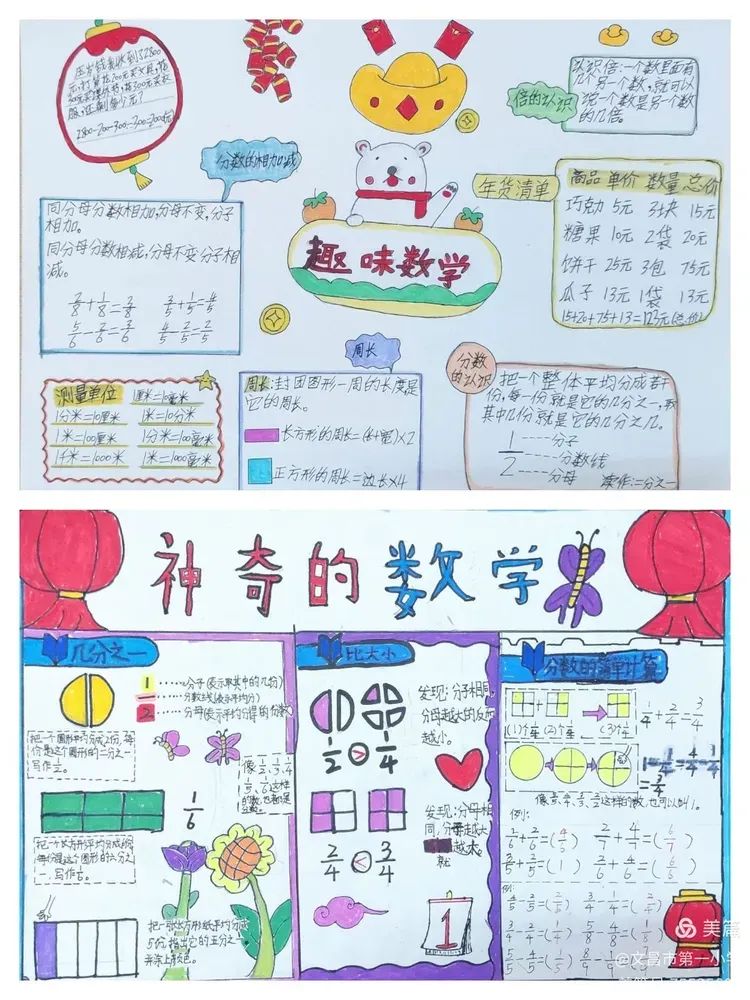 压岁钱我收到了2800
元,打算花200元买文具,花
服,还剩多少元?
倍的认识
认识倍:一个数里面有
几个另一个数,就可以
说一个数是另一个数
的几倍。
分数的相加减
同分母分数相加,分母不变,分子
相加。
同分母分数相减,分母不变分子相
减。
2/8+1/8=3/8 3/5+1/5=4/5
5/6-2/6=3/6 4/5-2/5=2/5
趣味数学
年货清单
商品 单价 数量 总价
巧克力 5元 3块 15元
糖果 10元 2袋 20元
饼干 25元 3包 75元
瓜子 13元 1袋 13元
15+20+75+13=123元(总价)
测量单位 1厘米=10毫米
1分米=10厘米 1米=10分米
1米=100厘米 1分米=100毫米
1千米=1000米 1米=1000毫米
周长
周长:封闭图形一周的长度是
它的周长。
长方形的周长=(长+宽)×2
正方形的周长=边长×4
分数的认识
把一个整体平均分成若干
份,每一份就是它的几分之一,取
其中几份就是它的几分之几。
1/2
分子
分数线
分母
读作:二分之一
神奇的数学
几分之一
1 分子(表示取其中的几份)
分数线(表示平均分)
2 分母(表示平均分得的份数)
把一个圆形平均分成2份,每
份是这个圆形的二分之一
写作1/2。
像1/2、1/3、1/4
1/5、1/6这样
的数,也都是
分数。
1/6
每份是这个图形的六分之
一,写作1/6。
把一张长方形纸平均分成
5份,指出它的五分之一
并涂上颜色。
比大小
发现:分子相同,
分母越大的反而
越小。
1/2 > 1/4
发现:分母相
同,分子越大
就越大。
2/4 < 3/4
1
分数的简单计算
(1)个1/4 (2)个1/4 (3)个1/4
1/4+2/4=3/4
1-1/4=4/4-1/4
=3/4
例:
1/6+3/6=(4/6) 2/7+4/7=(6/7)
3/5+2/5=(1) 2/6+4/6=(6/6)
例:
4/5-2/5=(2/5) 3/4-1/4=(2/4)
3/4-2/4=(1/4) 5/8-4/8=(1/8)
美篇
@文昌市第一小学